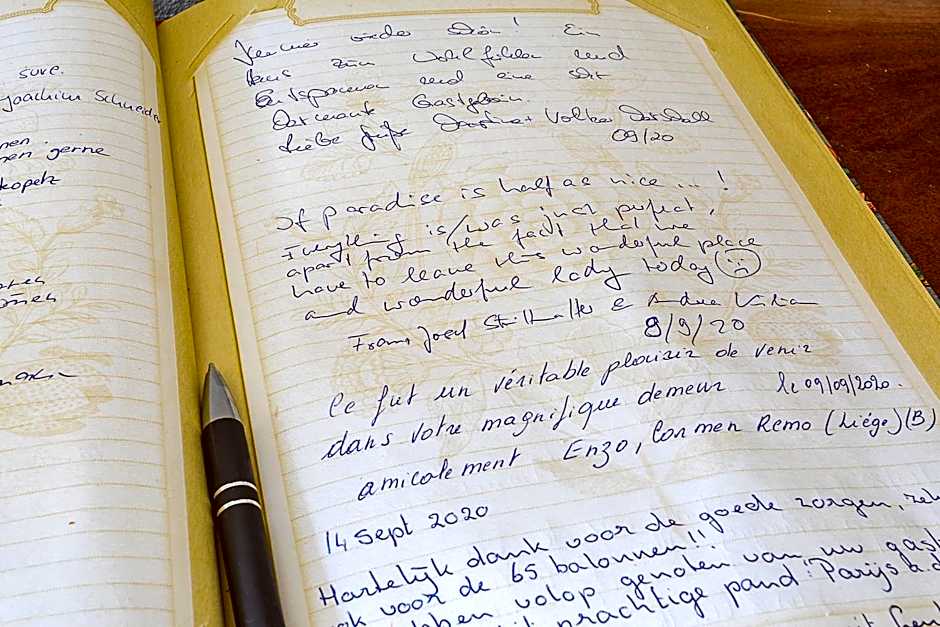 suve.
Joachim Schneider
nen.
nen gerne
kopetz
Immer wieder schön! Ein
Haus zum Wohlfühlen und
Entspannen und eine
Gastgeberin.
Liebe Grüße Volker
09/20
If paradise is half as nice ... !
Everything is/was just perfect,
apart from the fact that we
have to leave this wonderful place
and wonderful lady today
Franz Josef &
8/9/20
Ce fut un véritable plaisir de venir
dans votre magnifique demeur le 09/09/2020.
amicalement Enzo, Carmen Remo (Liége)(B)
14 Sept 2020
Hartelijk dank voor de goede zorgen,
ok voor de 65 balonnen!!
bben volop genoten van uw gast
prachtige pand: "Parijs